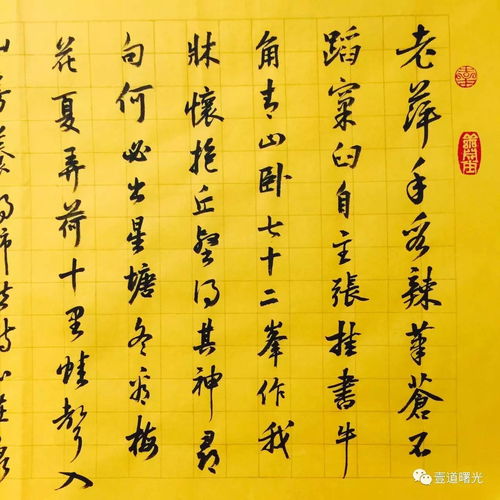 老萍手段辣筆蒼不
蹈窠臼自主張挂書牛
角青山卧七十二峯作我
牀懷抱丘壑得其神尋
句何必出星塘冬尋梅
花夏弄荷十里蛙聲入
壹道曙光